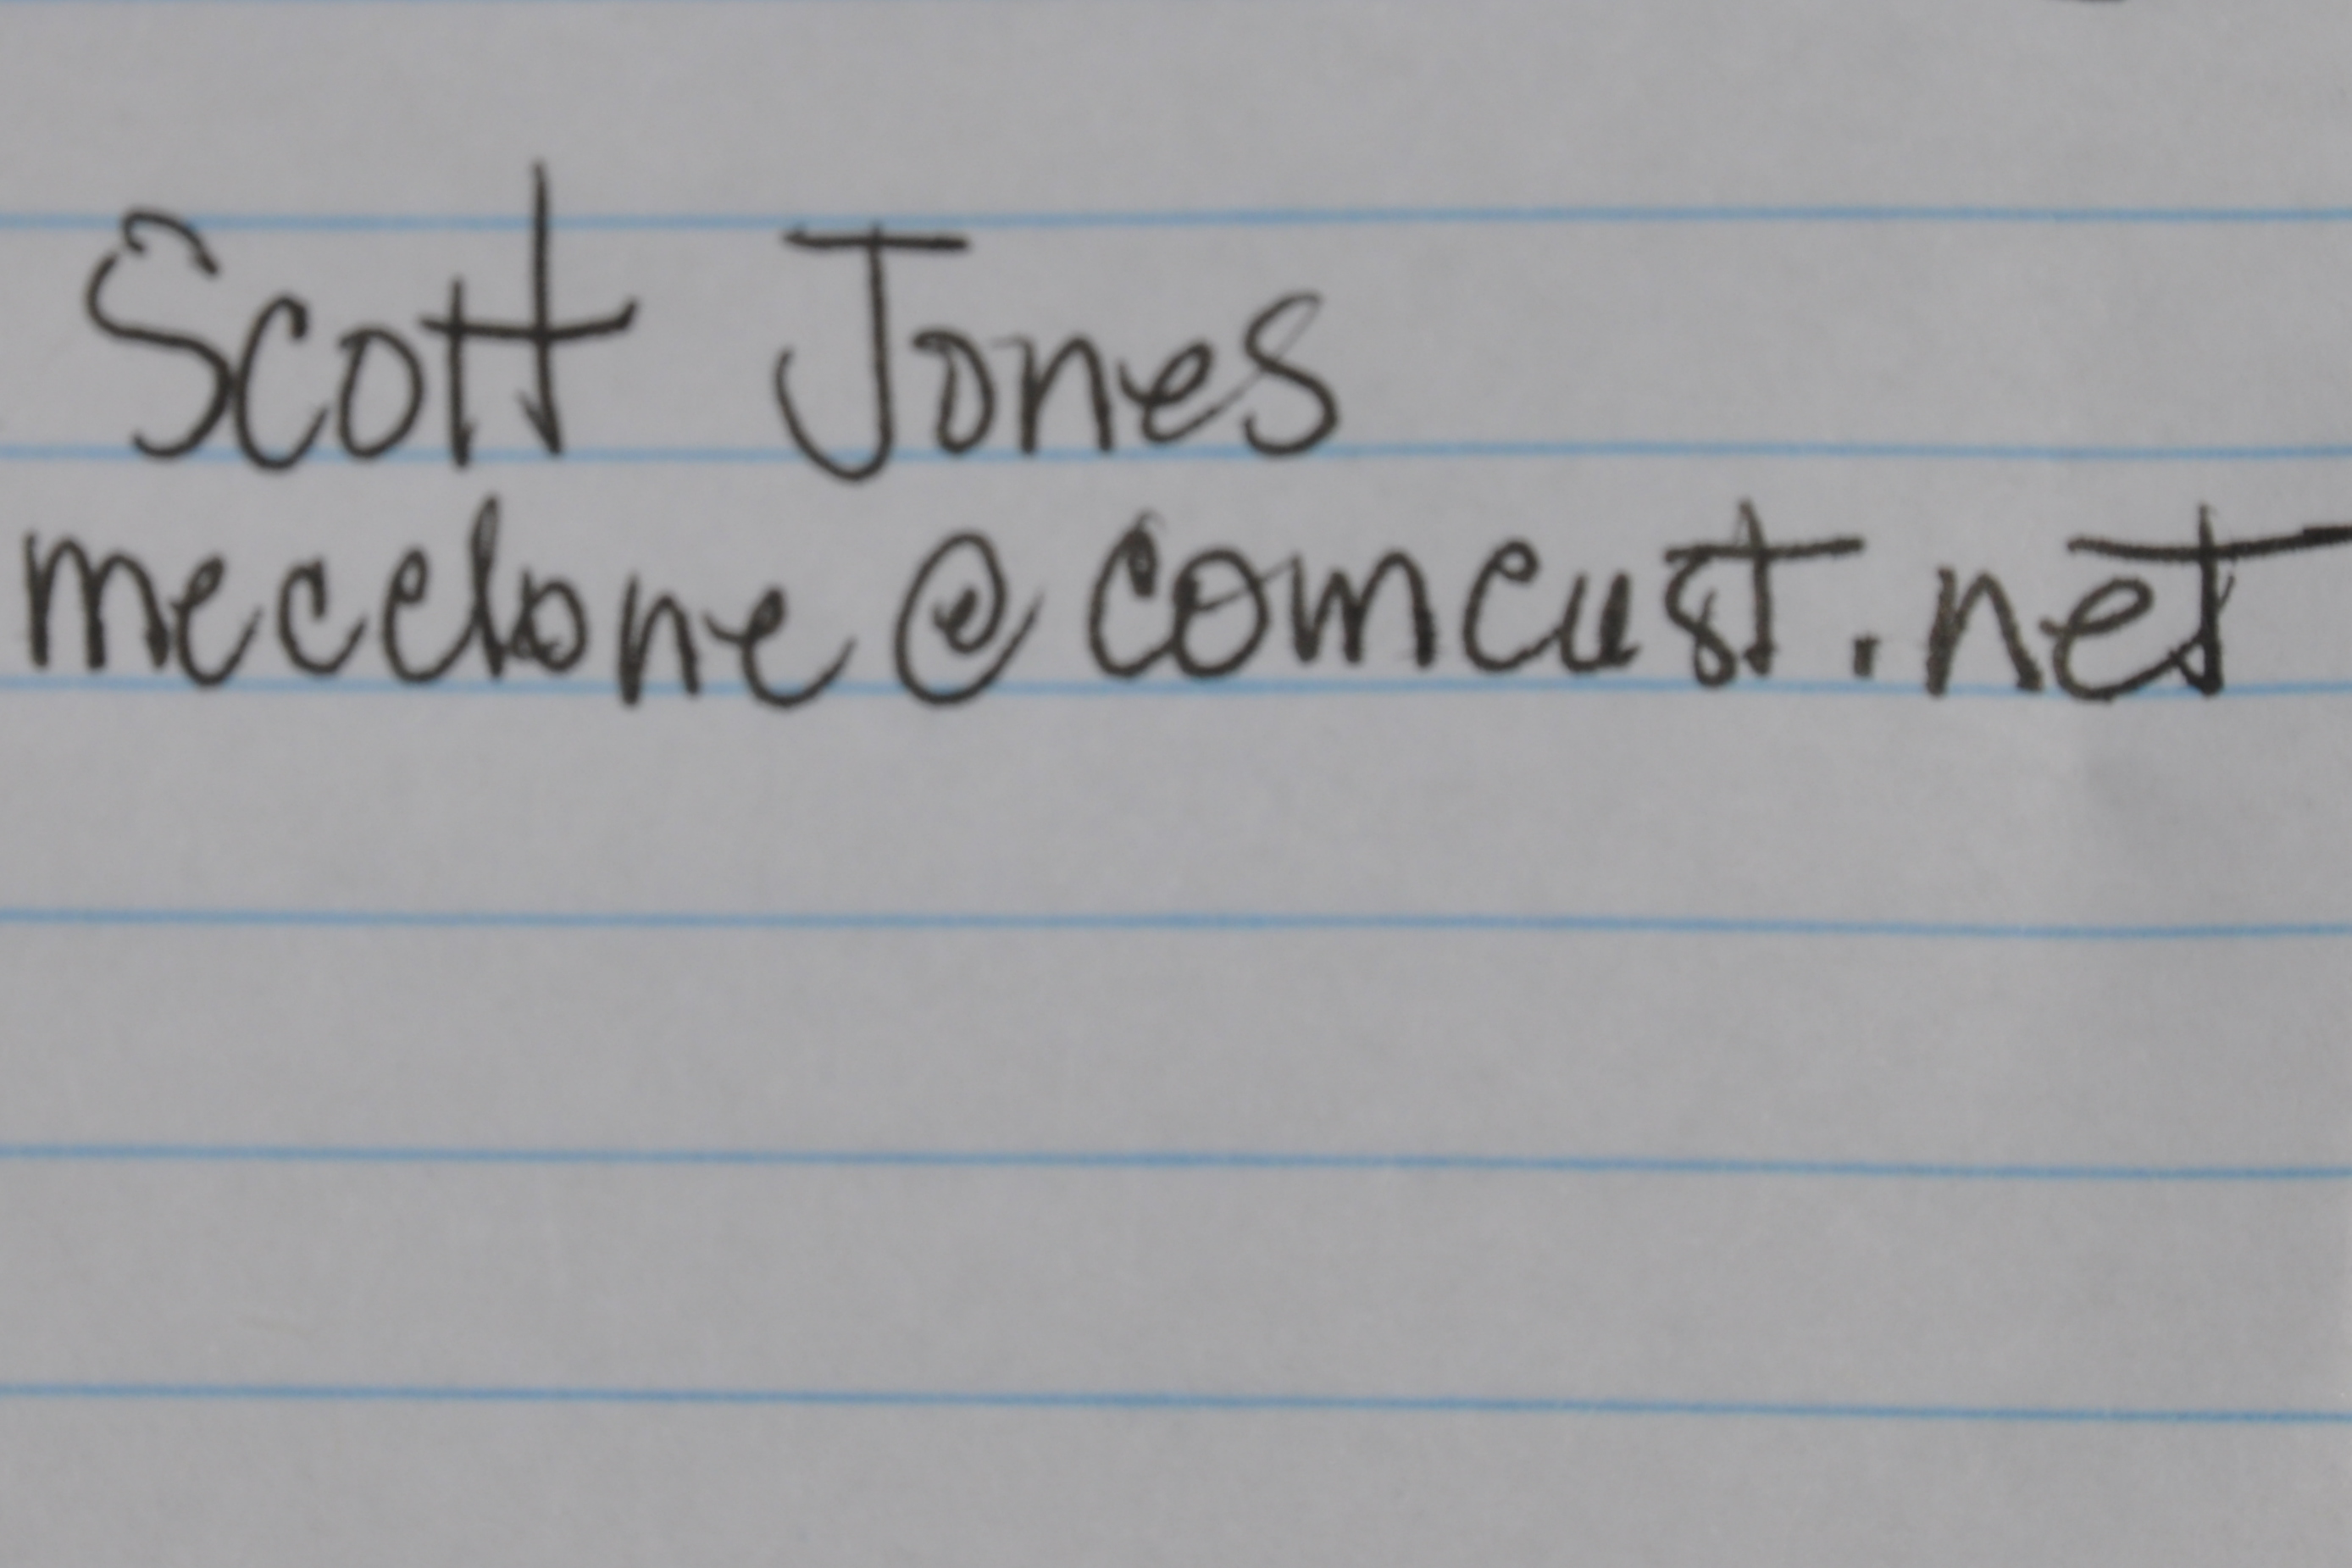 Scott Jones
mecelone@comcust.net